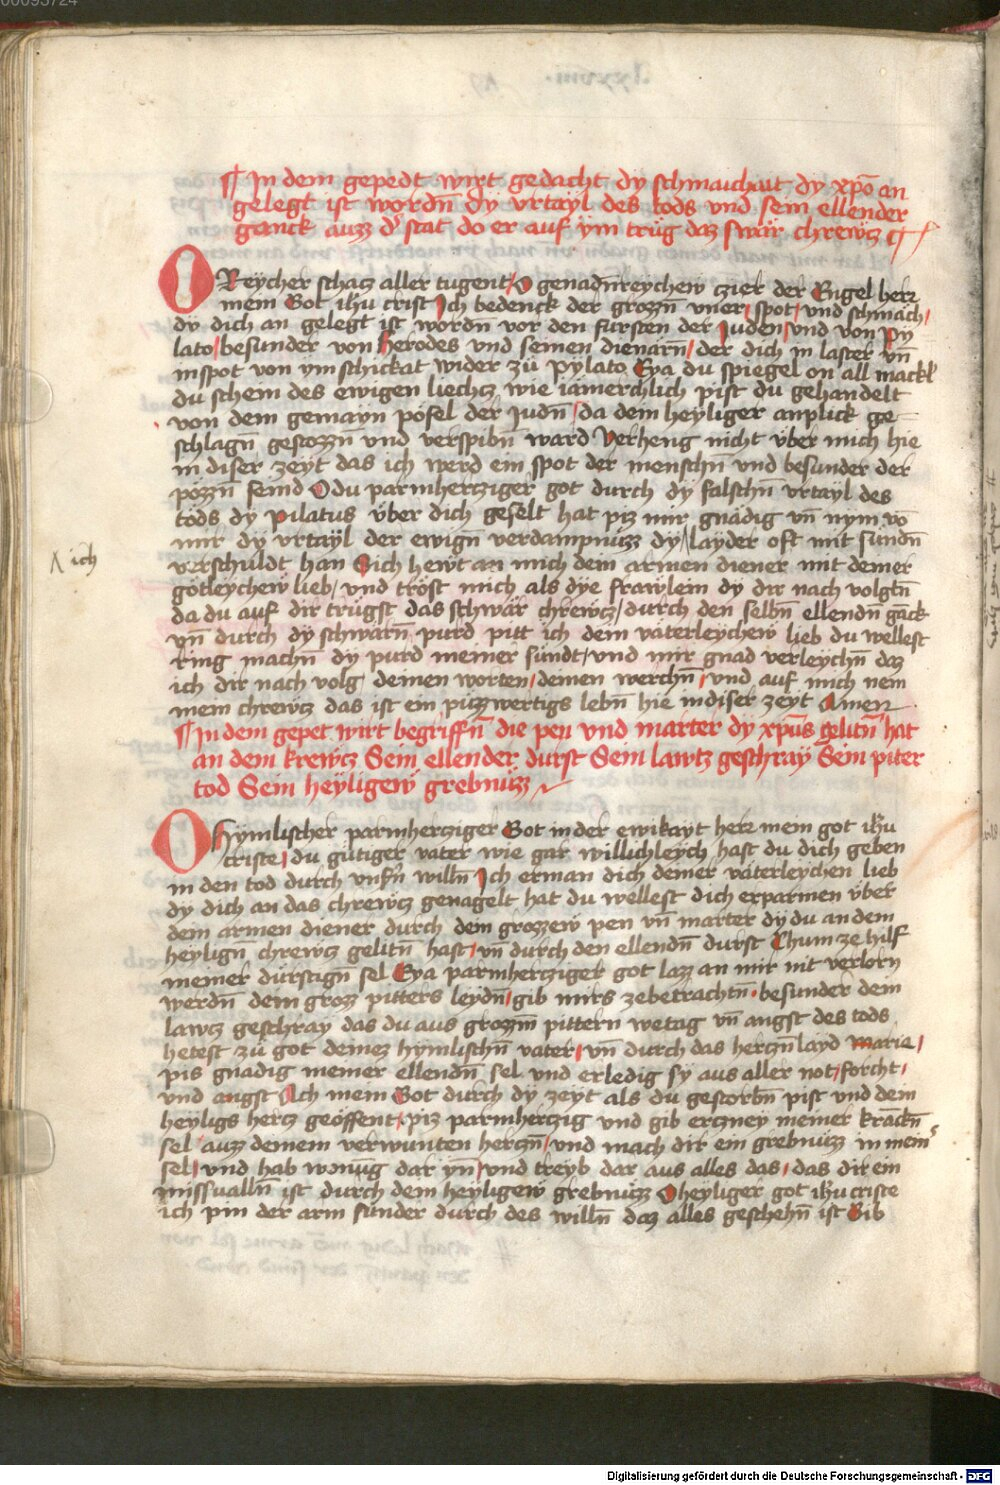 ¶ In dem gepedt wirt gedacht dy schmaichait dy xpō an
gelegt ist wordn̄ dy vrtayl des tods vnd sein ellender
ganck auzz d' stat do er auf ym trüg daz swär chrewcz
O Reycher schacz aller tugent O genadn̄reycher czier der Engel herr
mein Got ih̄u crist Ich bedenck der grozzn̄ vner spot vnd schmach
dy dich an gelegt ist wordn̄ vor den fürsten der Juden vnd von Py
lato besunder von Herodes vnd seinen dienarn̄ der dich in laster vn̄
in spot von ym schickat wider zü pylato Eya du spiegel on all mackl
du schein des ewigen liechcz wie iämerchlich pist du gehandelt
von dem gemayn pöfel der Judn̄ da dein heyliger anplick ge
schlagn̄ gestozzn̄ vnd verspibn̄ ward Verheng nicht über mich hie
in diser zeyt das ich werd ein spot der menschn̄ vnd besunder der
pözzn̄ feind O du parmhercziger got durch dy falschn̄ vrtayl des
töds dy Pilatus über dich geselt hat piz mir gnädig vn̄ nym vō
mir dy vrtayl der ewign̄ verdampnüzz dy layder oft mit sündn̄
ich
verschuldt han Sich hewt an mich dein armen diener mit deiner
götleychew lieb vnd tröst mich als dye frawlein dy dir nach volgtn̄
da du auf dir trügst das schwär chrewcz durch den selbn̄ ellendn̄ gāck
vn̄ durch dy schwärn̄ purd pitt ich dein väterleychew lieb du wellest
ring machn̄ dy purd meiner sündt vnd mir gnad verleychn̄ daz
ich dir nach volg deinen worten deinen werchn̄ vnd auf mich nem
mein chrewcz das ist ein püzzwertigs lebn̄ hie in diser zeyt Amen
¶ In dem gepet wirt begriffn̄ die pen vnd marter dy xpūs gelitn̄ hat
an dem krewcz Sein ellender durst Sein lawtz geschray Sein piter
tod Sein heyligew grebnüzz
O Hymlischer parmhercziger Got in der ewikayt herr mein got ih̄u
criste du gütiger vater wie gar willichleych hast du dich geben
in den tod durch vnsrn̄ willn̄ Ich erman dich deiner väterleychen lieb
dy dich an das chrewcz genagelt hat du wellest dich erparmen über
dein armen diener durch dein grozzew pen vn̄ marter dy du an dem
heylign̄ chrewcz gelitn̄ hast vn̄ durch den ellendn̄ durst Chum ze hilf
meiner dürstign̄ sel Eya parmhercziger got lazz an mir nit verlorn
werdn̄ dein grozz pitters leydn̄ gib mirs zebetrachtn̄ besunder dein
lawcz geschray das du aus grozzm̄ pittern wetag vn̄ angst des tods
hetest zü got deinez hymlischn̄ vater vn̄ durch das herczn̄layd Maria
pis gnadig meiner ellendn̄ sel vnd erledig sy aus aller not forcht
vnd angst Ach mein Got durch dy zeyt als du gestorbn̄ pist vnd dein
heyligs hercz geöffent piz parmherczig vnd gib erczney meiner krāckn̄
sel auzz deinem verwunten herczn̄ vnd mach dir ein grebnüzz in mein'
sel vnd hab wonūg dar yn̄ vnd treyb dar aus alles das das dir ein
missualln̄ ist durch dein heyligew grebnüzz O heyliger got ih̄u criste
ich pin der arm sünder durch des willn̄ daz alles geschehn̄ ist Gib